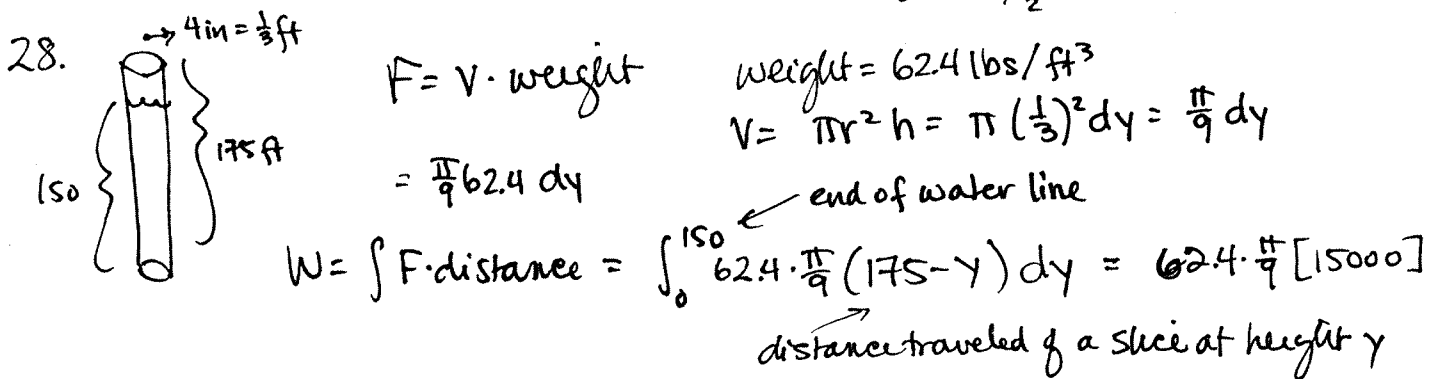 28.
4 in = 1/3 ft
150
175 ft
F = V · weight
weight = 62.4 lbs/ft³
V = πr²h = π(1/3)²dy = π/9 dy
= π/9 62.4 dy
end of water line
W = ∫ F·distance = ∫₀¹⁵⁰ 62.4 · π/9 (175-y) dy = 62.4 · π/9 [15000]
distance traveled of a slice at height y